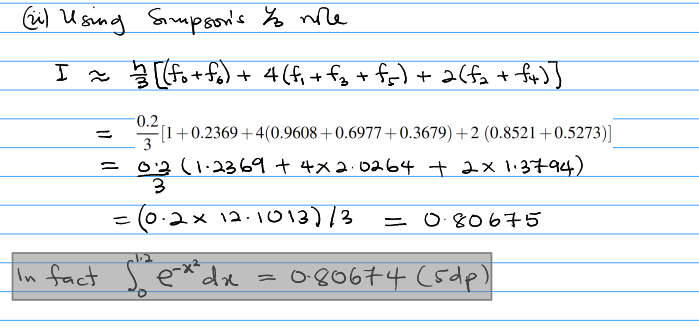 (ii) Using Simpson's 1/3 rule
I ≈ h/3 [(f₀+f₆) + 4(f₁+f₃+f₅) + 2(f₂+f₄)]
= 0.2/3 [1+0.2369+4(0.9608+0.6977+0.3679)+2 (0.8521+0.5273)]
= 0.2/3 (1.2369 + 4×2.0264 + 2×1.3794)
= (0.2 × 12.1013)/3 = 0.80675
In fact ∫₀^1.2 e^-x² dx = 0.80674 (5dp)